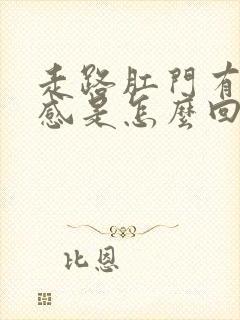 走路肛門有
感是怎麼回
比恩